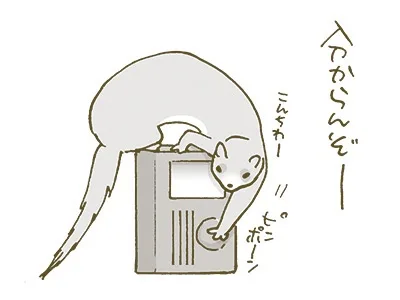 分からんぞー
こんちわー
ピンポーン